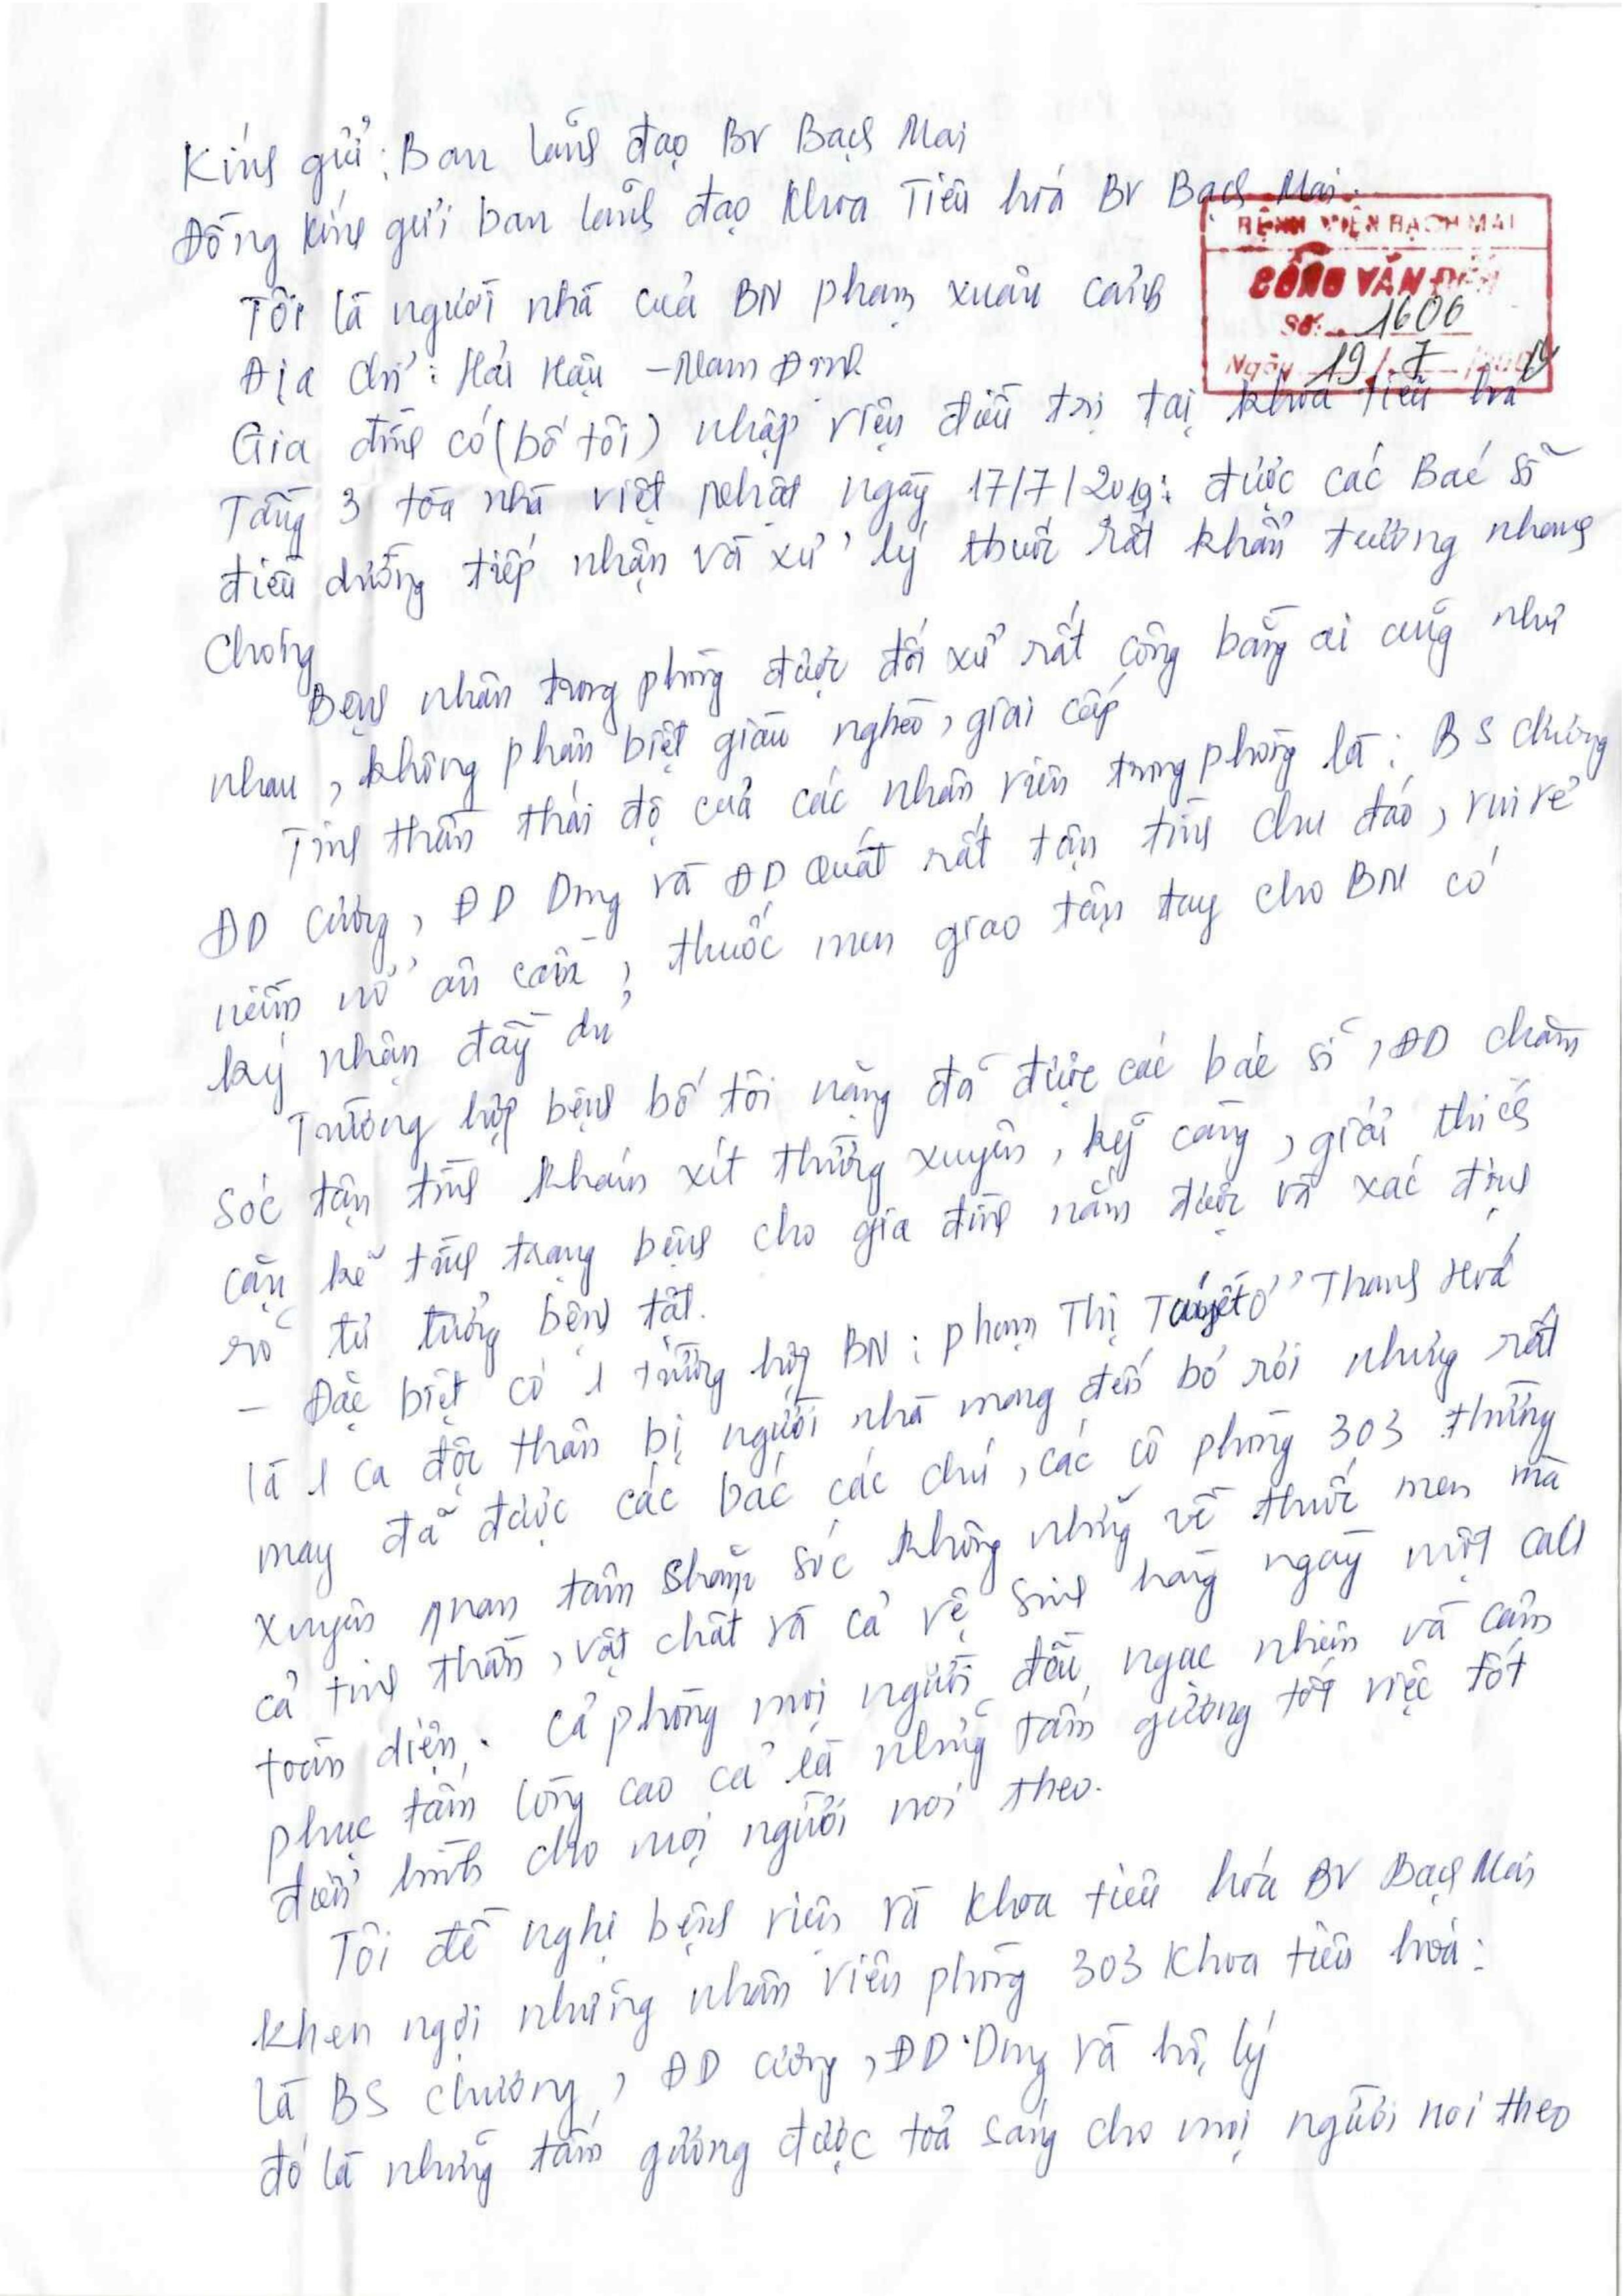 Kính gửi: Ban lãnh đạo BV Bạch Mai
Đồng kính gửi ban lãnh đạo khoa Tiêu hoá BV Bạch Mai.
BỆNH VIỆN BẠCH MAI
CÔNG VĂN ĐẾN
Số: 1606
Ngày 19/7/
Tôi là người nhà của BN phạm xuân cảnh
Địa chỉ: Hải Hậu - Nam Định
Gia đình có (bố tôi) nhập viện điều trị tại khoa tiêu hoá
Tầng 3 tòa nhà việt nhật ngày 17/7/2019: được các Bác sĩ
điều dưỡng tiếp nhận và xử lý thuốc rất khẩn trương nhanh
Chóng
Bệnh nhân trong phòng được đối xử rất công bằng ai cũng như
nhau, không phân biệt giàu nghèo, giai cấp
Tinh thần thái độ của các nhân viên trong phòng là: BS chương
ĐD cường, ĐD Dung và ĐD Quất rất tận tình chu đáo, vui vẻ
niềm nở ân cần, thuốc men giao tận tay cho BN có
ký nhận đầy đủ
Trường hợp bệnh bố tôi nặng đã được các bác sĩ, ĐD chăm
sóc tận tình khám xét thường xuyên, kỹ càng, giải thích
cặn kẽ tình trạng bệnh cho gia đình nắm được và xác định
rõ tư tưởng bệnh tật.
- Đặc biệt có 1 trường hợp BN: phạm Thị Tuyết ở Thanh Hoá
là 1 ca độc thân bị người nhà mang đến bỏ rơi nhưng rất
may đã được các bác các chú, các cô phòng 303 thường
xuyên quan tâm chăm sóc không những về thuốc men mà
cả tinh thần, vật chất và cả vệ sinh hàng ngày một cách
toàn diện. Cả phòng mọi người đều ngạc nhiên và cảm
phục tấm lòng cao cả là những tấm gương tốt việc tốt
điển hình cho mọi người noi theo.
Tôi đề nghị bệnh viện và khoa tiêu hóa BV Bạch Mai
khen ngợi những nhân viên phòng 303 khoa tiêu hoá:
là BS chương, ĐD cường, ĐD Dung và hộ lý
đó là những tấm gương được toả sáng cho mọi người noi theo